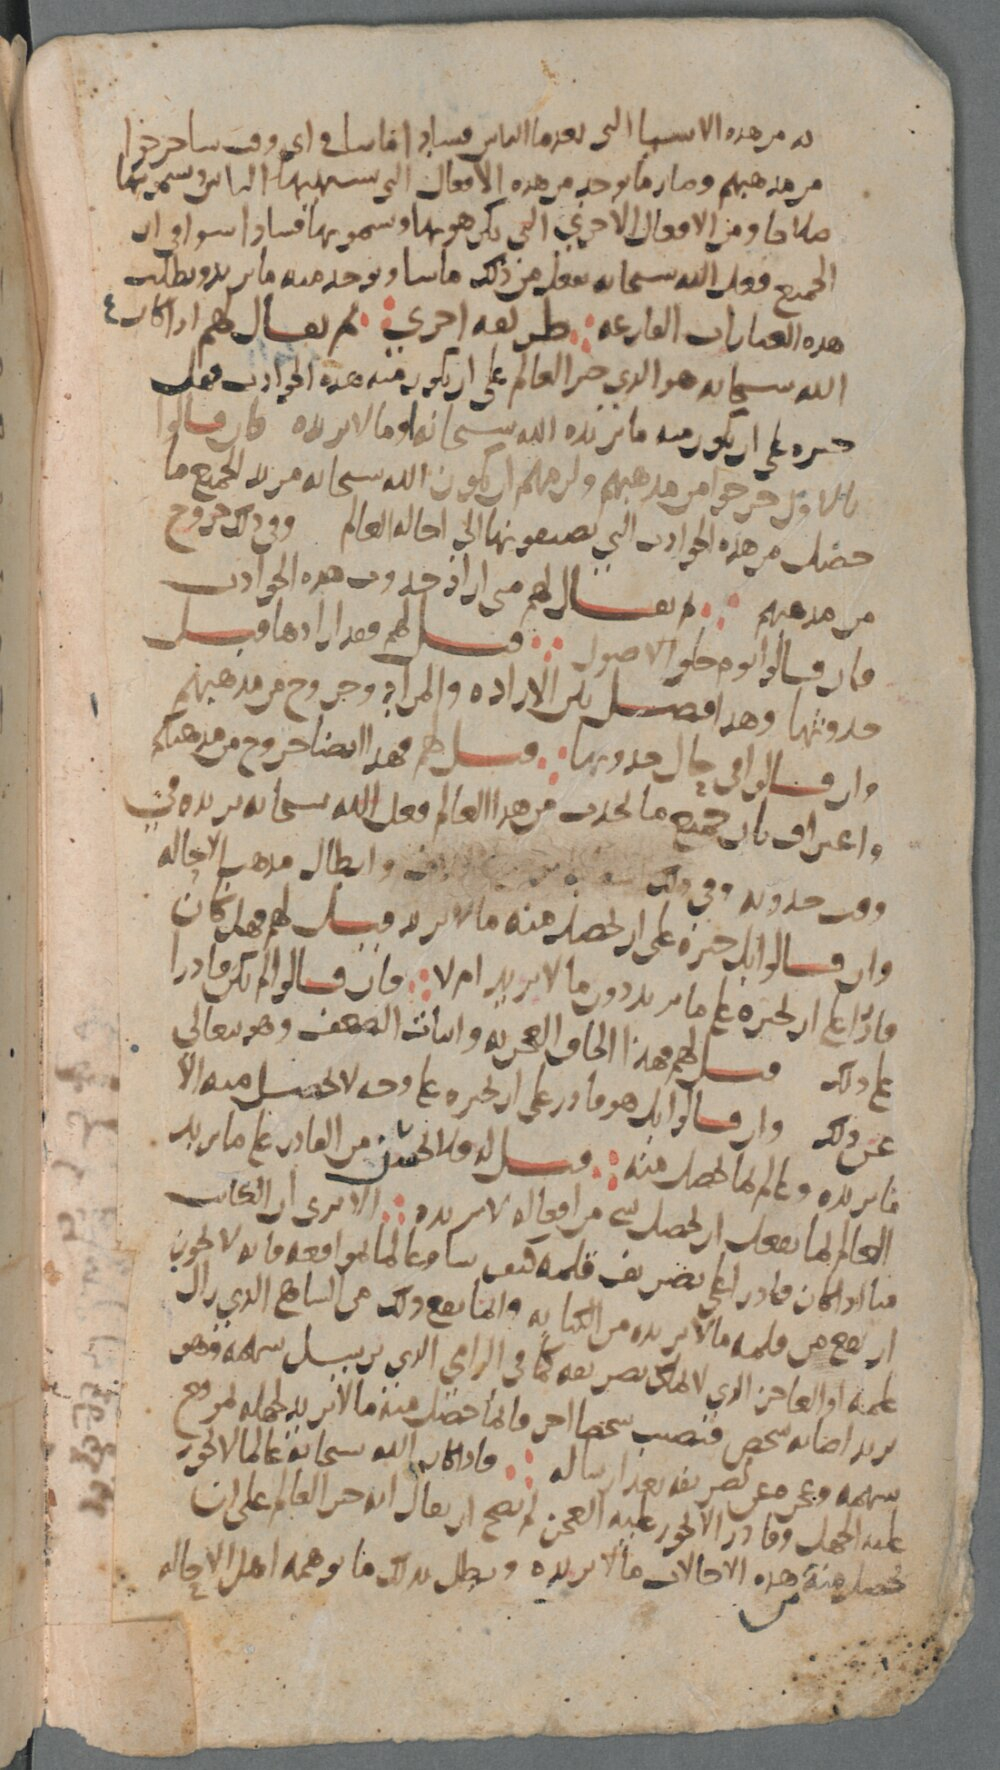 به من هذه الاسبا التي يعدها الناس فسادا اما سا في اي وقت سا خرجوا
من مذهبهم وصار ما يوجد من هذه الافعال التي يستهيها الناس ويسمونها
صلاحا ومن الافعال الاخرى التي يكرهونها ويسمونها فسادا سوا في ان
الجميع فعل الله سبحانه يفعل من ذلك ما سا ويوجد منه ما يريد وبطلت
هذه العبارات الفارغه طريقه اخرى ثم يقال لهم اذا كان
الله سبحانه هو الذي جبر العالم على ان يكون منه هذه الحوادث فهل
جبره على ان يكون منه ما يريده الله سبحانه او ما لا يريده فان قالوا
بالاول خرجوا من مذهبهم ولزمهم ان يكون الله سبحانه مريد لجميع ما
حصل من هذه الحوادث التي يضيفونها الى احالة العالم وفي ذلك خروج
من مذهبهم ثم يقال لهم متى اراد حدوث هذه الحوادث
فان قالوا يوم خلق الاصول قيل لهم فقد ارادها قبل
حدوثها وهذا فصل بين الاراده والمراد وخروج من مذهبهم
وان قالوا في حال حدوثها قيل لهم فهذا ايضا خروج من مذهبكم
واعتراف بان جميع ما يحدث من هذا العالم فعل الله سبحانه يريده في
وقت حدوثه وفي ذلك وابطال مذهب الاحاله
وان قالوا بل جبره على ان يحصل منه ما لا يريد قيل لهم فهل كان
قادرا على ان يجبره على ما يريد دون ما لا يريد ام لا فان قالوا لم يكن قادرا
على ذلك قيل لهم فهذا الحاق العجز به واثبات الضعف وهو يتعالى
عن ذلك وان قالوا بل هو قادر على ان يجبره على وجه لا يحصل منه الا
ما يريده وعالم بما يحصل منه قيل له فلا يحسن من القادر على ما يريد
العالم بما يفعل ان يحصل شي من افعاله لا يريده الا ترى ان الكاتب
منا اذا كان قادرا على تصريف قلمه كيف سا وعالما بمواقعه فانه لا يجوز
ان يقع من قلمه ما لا يريده من الكتابه وانما يقع ذلك من الساهي الذي زال
علمه او العاجز الذي لا يملك تصريفه كما في الرامي الذي يرسل سهمه وهو
يريد اصابة شخص فتصيب شخصا اخر فانما حصل منه ما لا يريد لجهله لموقع
سهمه وعجزه عن تصريفه بعد ارساله فاذا كان الله سبحانه عالما لا يجوز
عليه الجهل وقادر لا يجوز عليه العجز لم يصح ان يقال انه جبر العالم على ان
يحصل منه من هذه الاحالات ما لا يريده وبطل بذلك ما توهمه اهل الاحاله